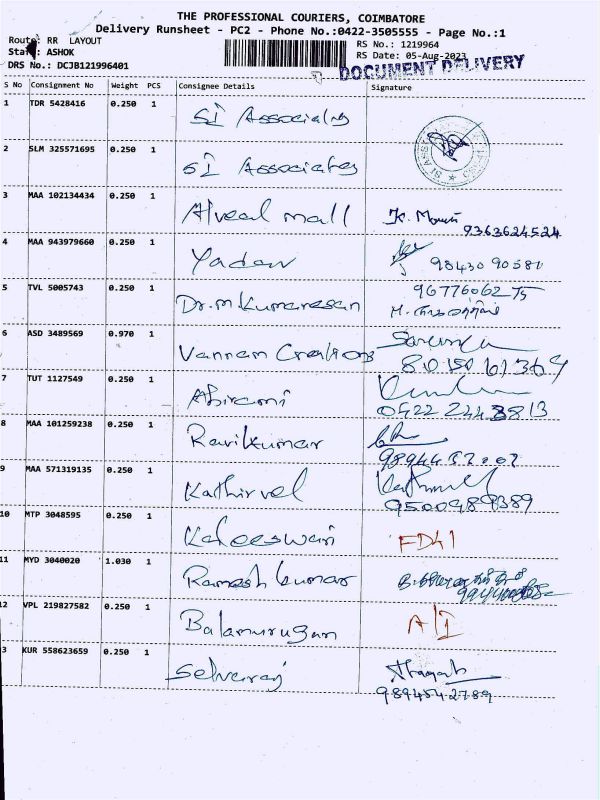 THE PROFESSIONAL COURIERS, COIMBATORE
Delivery Runsheet - PC2 - Phone No.:0422-3505555 - Page No.:1
Route: RR LAYOUT
Staff: ASHOK
RS No.: 1219964
RS Date: 05-Aug-2023
DRS No.: DCJB121996401
DOCUMENT DELIVERY
S No Consignment No Weight PCS Consignee Details Signature
1 TDR 5428416 0.250 1 SI Associates
2 SLM 325571695 0.250 1 SI Associates
3 MAA 102134434 0.250 1 Alveal mall
9363624524
4 MAA 943979660 0.250 1 Yadav 98430 90581
5 TVL 5005743 0.250 1 Dr.m.Kumaresan 96776062 75
6 ASD 3489569 0.970 1 Vannam Creations
80150 61369
7 TUT 1127549 0.250 1 Abirami
0422 2443813
8 MAA 101259238 0.250 1 Ravikumar
9 MAA 571319135 0.250 1 Kathirvel
9500989389
10 MTP 3048595 0.250 1 Kaleeswari FD41
11 MYD 3040020 1.030 1 Ramesh kumar
12 VPL 219827582 0.250 1 Balamurugan A/I
3 KUR 558623659 0.250 1 Selvaraj
989454 2789